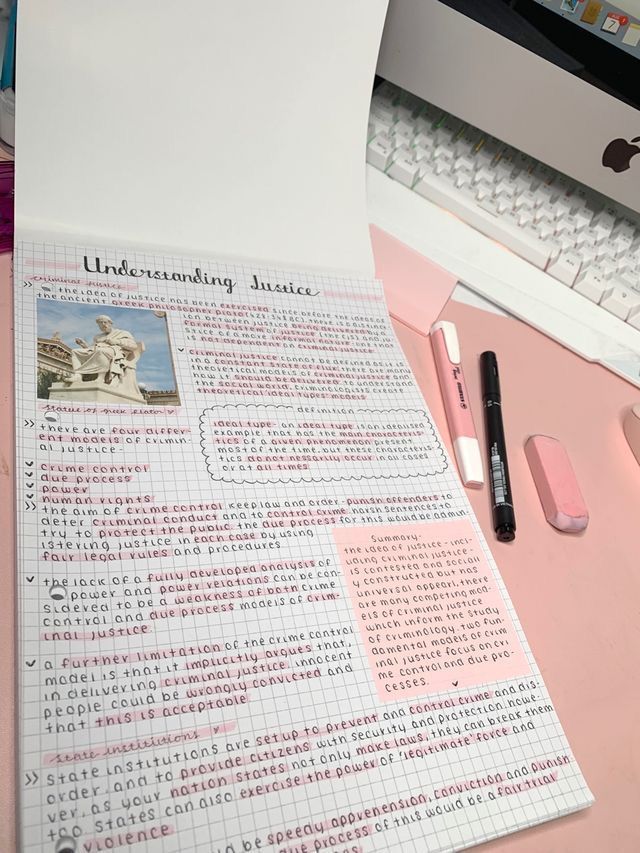 Understanding Justice
criminal justice
>> the idea of justice has been exercised since before the ideas of
the ancient greek philosopher plato
ion between justice being delivered by
formal system of justice
is not dependent on criminal justice.
criminal justice cannot be defined as it is
in a constant state of flux. there are many
theoretical models of criminal justice and
how it should be delivered. to understand
the social world, criminologists create
theoretical ideal types: models.
statue of greek plato
definition
ideal type - an ideal type is an idealised
example that has the main characteris-
tics of a given phenomena present
most of the time, but these characteris-
ics do not necessarily occur in all cases
or at all times.
>> there are four differ-
ent models of crimin-
al justice -
crime control
due process
power
human rights
>> the aim of crime control keep law and order. punish offenders to
deter criminal conduct and to control crime. harsh sentences to
try to protect the public. the due process for this would be admin-
istering justice in each case by using
fair legal rules and procedures.
the lack of a fully developed analysis of
power and power relations can be con-
sidered to be a weakness of both crime
control and due process models of crim-
inal justice.
a further limitation of the crime control
model is that it implicitly argues that,
in delivering criminal justice, innocent
people could be wrongly convicted and
that this is acceptable.
Summary:
the idea of justice - incl-
uding criminal justice -
is contested and social-
y constructed but has
universal appeal. there
are many competing mod-
els of criminal justice
which inform the study
of criminology. two fun-
damental models of crim
inal justice focus on cri-
me control and due pro-
cesses.
state institutions
>> state institutions are set up to prevent and control crime and dis-
order, and to provide citizens with security and protection. howe-
ver, as your nation states not only make laws, they can break them
too. states can also exercise the power of "legitimate" force and
violence.
d be speedy apprehension, conviction and punish
due process of this would be a fair trial